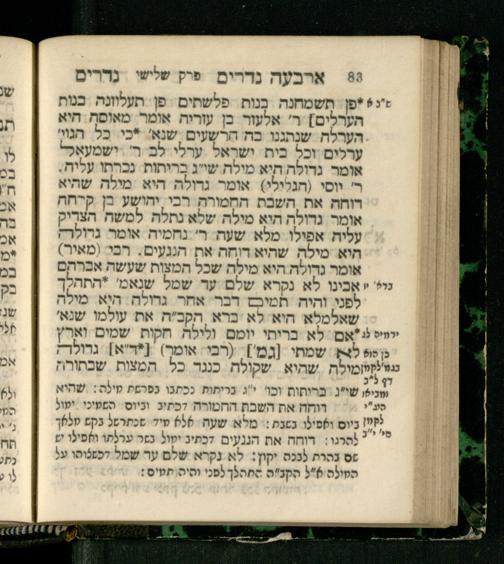 83 ארבעה נדרים פרק שלישי נדרים
ש"ב א *פן תשמחנה בנות פלשתים פן תעלוזנה בנות
הערלים] ר' אלעזר בן עזריה אומר מאוסה היא
הערלה שנתגנו בה הרשעים שנא' *כי כל הגוי'
ערלים וכל בית ישראל ערלי לב ר' ישמעאל
אומר גדולה היא מילה שי"ג בריתות נכרתו עליה.
ר' יוסי (הגלילי) אומר גדולה היא מילה שהיא
דוחה את השבת החמורה רבי יהושע בן קרחה
אומר גדולה היא מילה שלא נתלה למשה הצדיק
עליה אפילו מלא שעה ר' נחמיה אומר גדולה
היא מילה שהיא דוחת את הנגעים. רבי (מאיר)
אומר גדולה היא מילה שכל המצות שעשה אברהם
ברא' יז אבינו לא נקרא שלם עד שמל שנאמ' *התהלך
לפני והיה תמים דבר אחר גדולה היא מילה
שאלמלא היא לא ברא הקב"ה את עולמו שנא'
ירמיה לג *אם לא בריתי יומם ולילה חקות שמים וארץ
לא שמתי [גמ'] (רבי אומר) [*ד"א] גדולה
מילה שהיא שקולה כנגד כל המצות שבתורה
שי"ג בריתות וכו' י"ג בריתות נכתבו בפרשת מילה: שהיא
דוחה את השבת החמורה דכתיב וביום השמיני ימול
ביום ואפילו בשבת: מלא שעה אלא מיד שנתרשל בקש מלאך
להרגו: דוחה את הנגעים דכתיב ימול בשר ערלתו ואפילו יש
שם בהרת לבנה יקוץ: לא נקרא שלם עד שמל דכשלוהו על
המילה א"ל הקב"ה התהלך לפני והיה תמים: